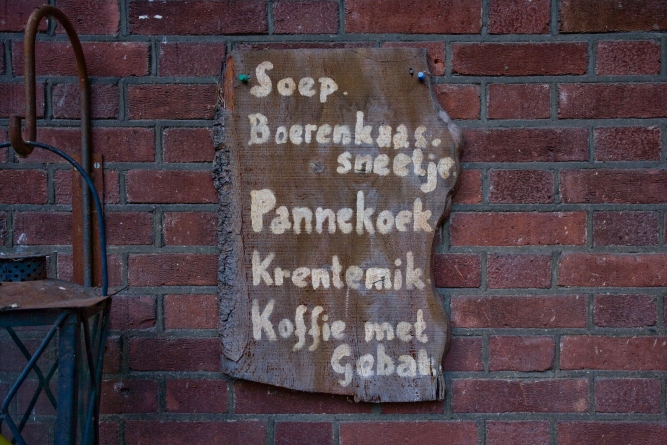 Soep.
Boerenkaas.
sneetje.
Pannekoek
Krentemik.
Koffie met
Gebak.